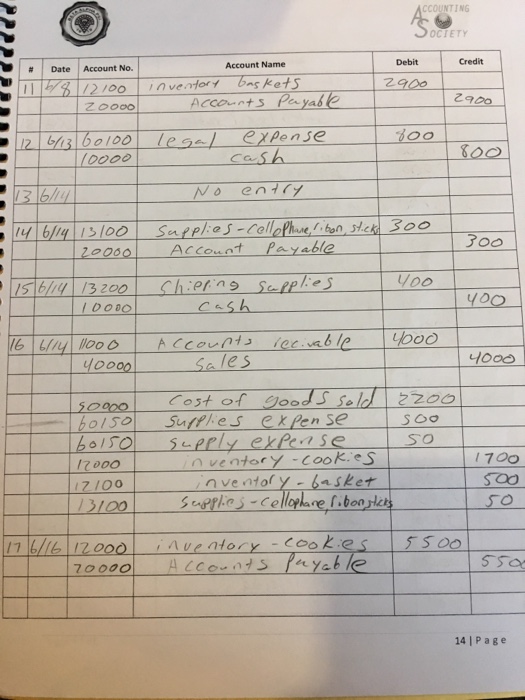 ACCOUNTING
SOCIETY
# Date Account No. Account Name Debit Credit
11 6/8 12100 inventory baskets 2900
20000 Accounts Payable 2900
12 6/13 60100 legal expense 800
10000 cash 800
13 6/14 No entry
14 6/14 13100 Supplies-cellophane, ribon, sticks 300
20000 Account Payable 300
15 6/14 13200 Shipping Supplies 400
10000 cash 400
16 6/14 11000 Accounts recivable 4000
40000 Sales 4000
50000 Cost of goods sold 2200
60150 supplies expense 500
60150 supply expense 50
12000 inventory-cookies 1700
12100 inventory-basket 500
13100 Supplies-cellophane, ribon, sticks 50
17 6/16 12000 inventory-cookies 5500
20000 Accounts Payable 550
14 | Page